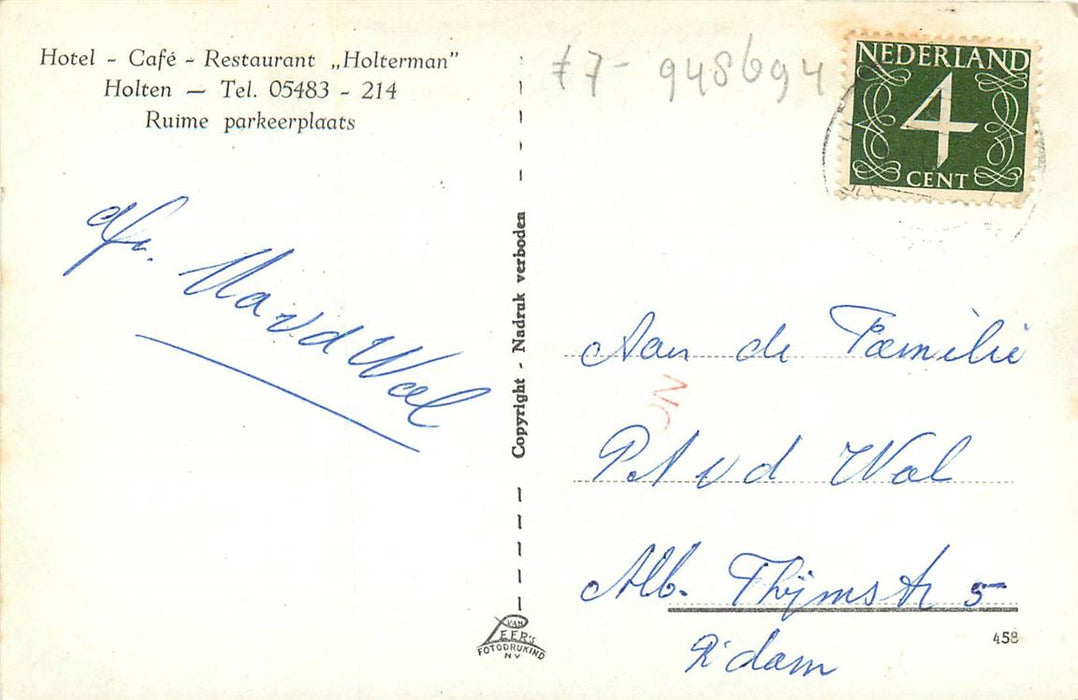 Hotel - Café - Restaurant „Holterman”
Holten — Tel. 05483 - 214
Ruime parkeerplaats
£7- 948694
NEDERLAND
4
CENT
afz. M a v d Wal
Copyright - Nadruk verboden
Aan de Familie
P A v d Wal
Alb. Thijmstr 5
R'dam
VAN
LEER'S
FOTODRUKIND
NV
458